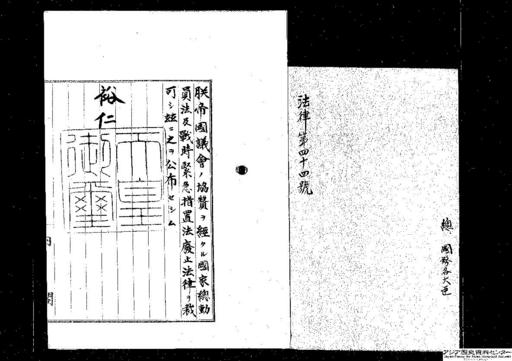 法律第四十四號
朕帝國議會ノ協贊ヲ經タル國家總動
員法及戰時緊急措置法廢止法律ヲ裁
可シ玆ニ之ヲ公布セシム
裕仁
天皇
御璽
内閣
アジア歴史資料センター